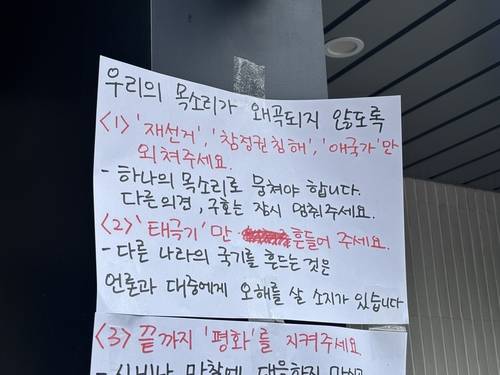 우리의 목소리가 왜곡되지 않도록
<1> '재선거', '참정권침해', '애국가'만
외쳐주세요.
- 하나의 목소리로 뭉쳐야 합니다.
다른의견, 구호는 잠시 멈춰주세요.
<2> '태극기'만 흔들어 주세요.
- 다른 나라의 국기를 흔드는 것은
언론과 대중에게 오해를 살 소지가 있습니다
<3> 끝까지 '평화'를 지켜주세요
- 시비나 마찰에 대응하지 마시고